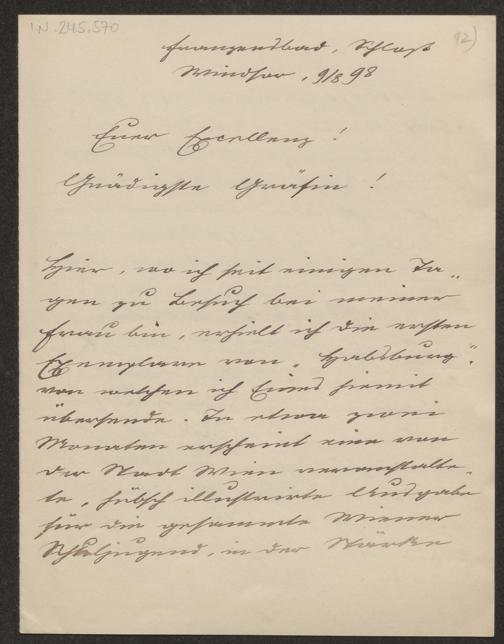 IN 245.570
92)
Franzensbad, Schloß
Windsor, 9/8 98
Euer Excellenz!
Gnädigste Gräfin!
Hier, wo ich seit einigen Ta-
gen zu Besuch bei meiner
Frau bin, erhielt ich die ersten
Exemplare von „Habsburg“,
von welchen ich Eines hiemit
übersende. In etwa zwei
Monaten erscheint eine von
der Stadt Wien veranstalte-
te, hübsch illustrirte Ausgabe
für die gesammte Wiener
Schuljugend, in der Stärke